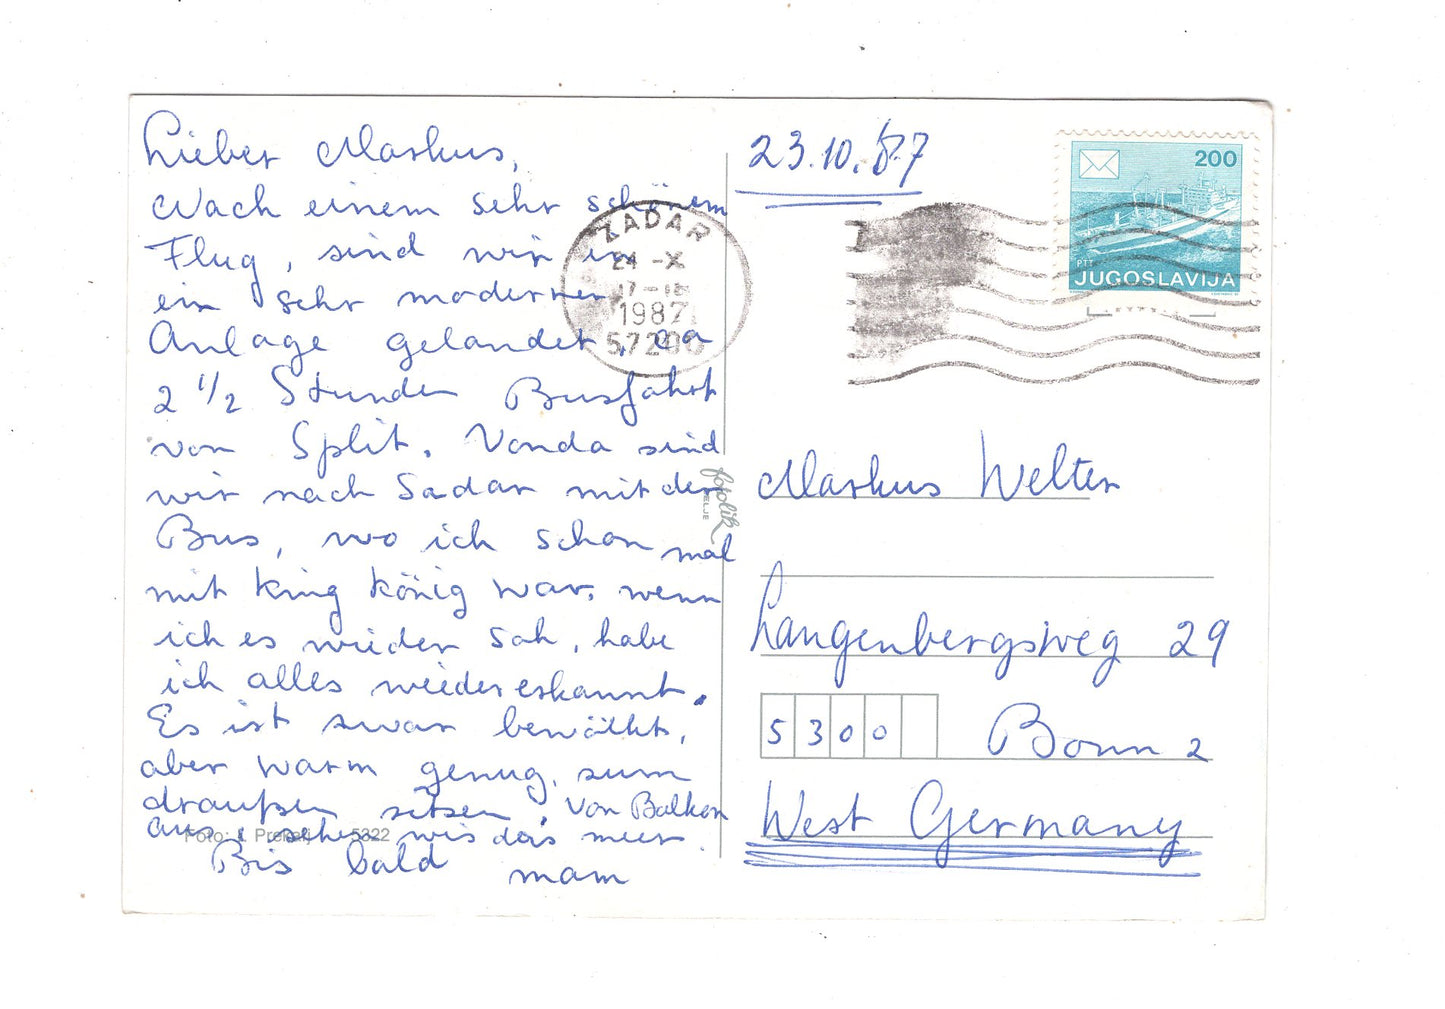 Lieber Markus,
Nach einem sehr schönem
Flug, sind wir in
ein sehr moderner
Anlage gelandet, ca
2 1/2 Stunden Busfahrt
von Split. Vonda sind
wir nach Sadar mit den
Bus, wo ich schon mal
mit King König war, wenn
ich es wieder sah, habe
ich alles wiedererkannt.
Es ist swar bewölkt,
aber warm genug, sum
draußen sitsen, von Balkon
aus sehen wir das meer.
Bis bald mam
Foto: Prekalj 5322
fotolik
ELJE
23.10.87
ZADAR
24 -X
17-18
1987
57200
200
PTT
JUGOSLAVIJA
Markus Welter
Langenbergsweg 29
5300 Bonn 2
West Germany